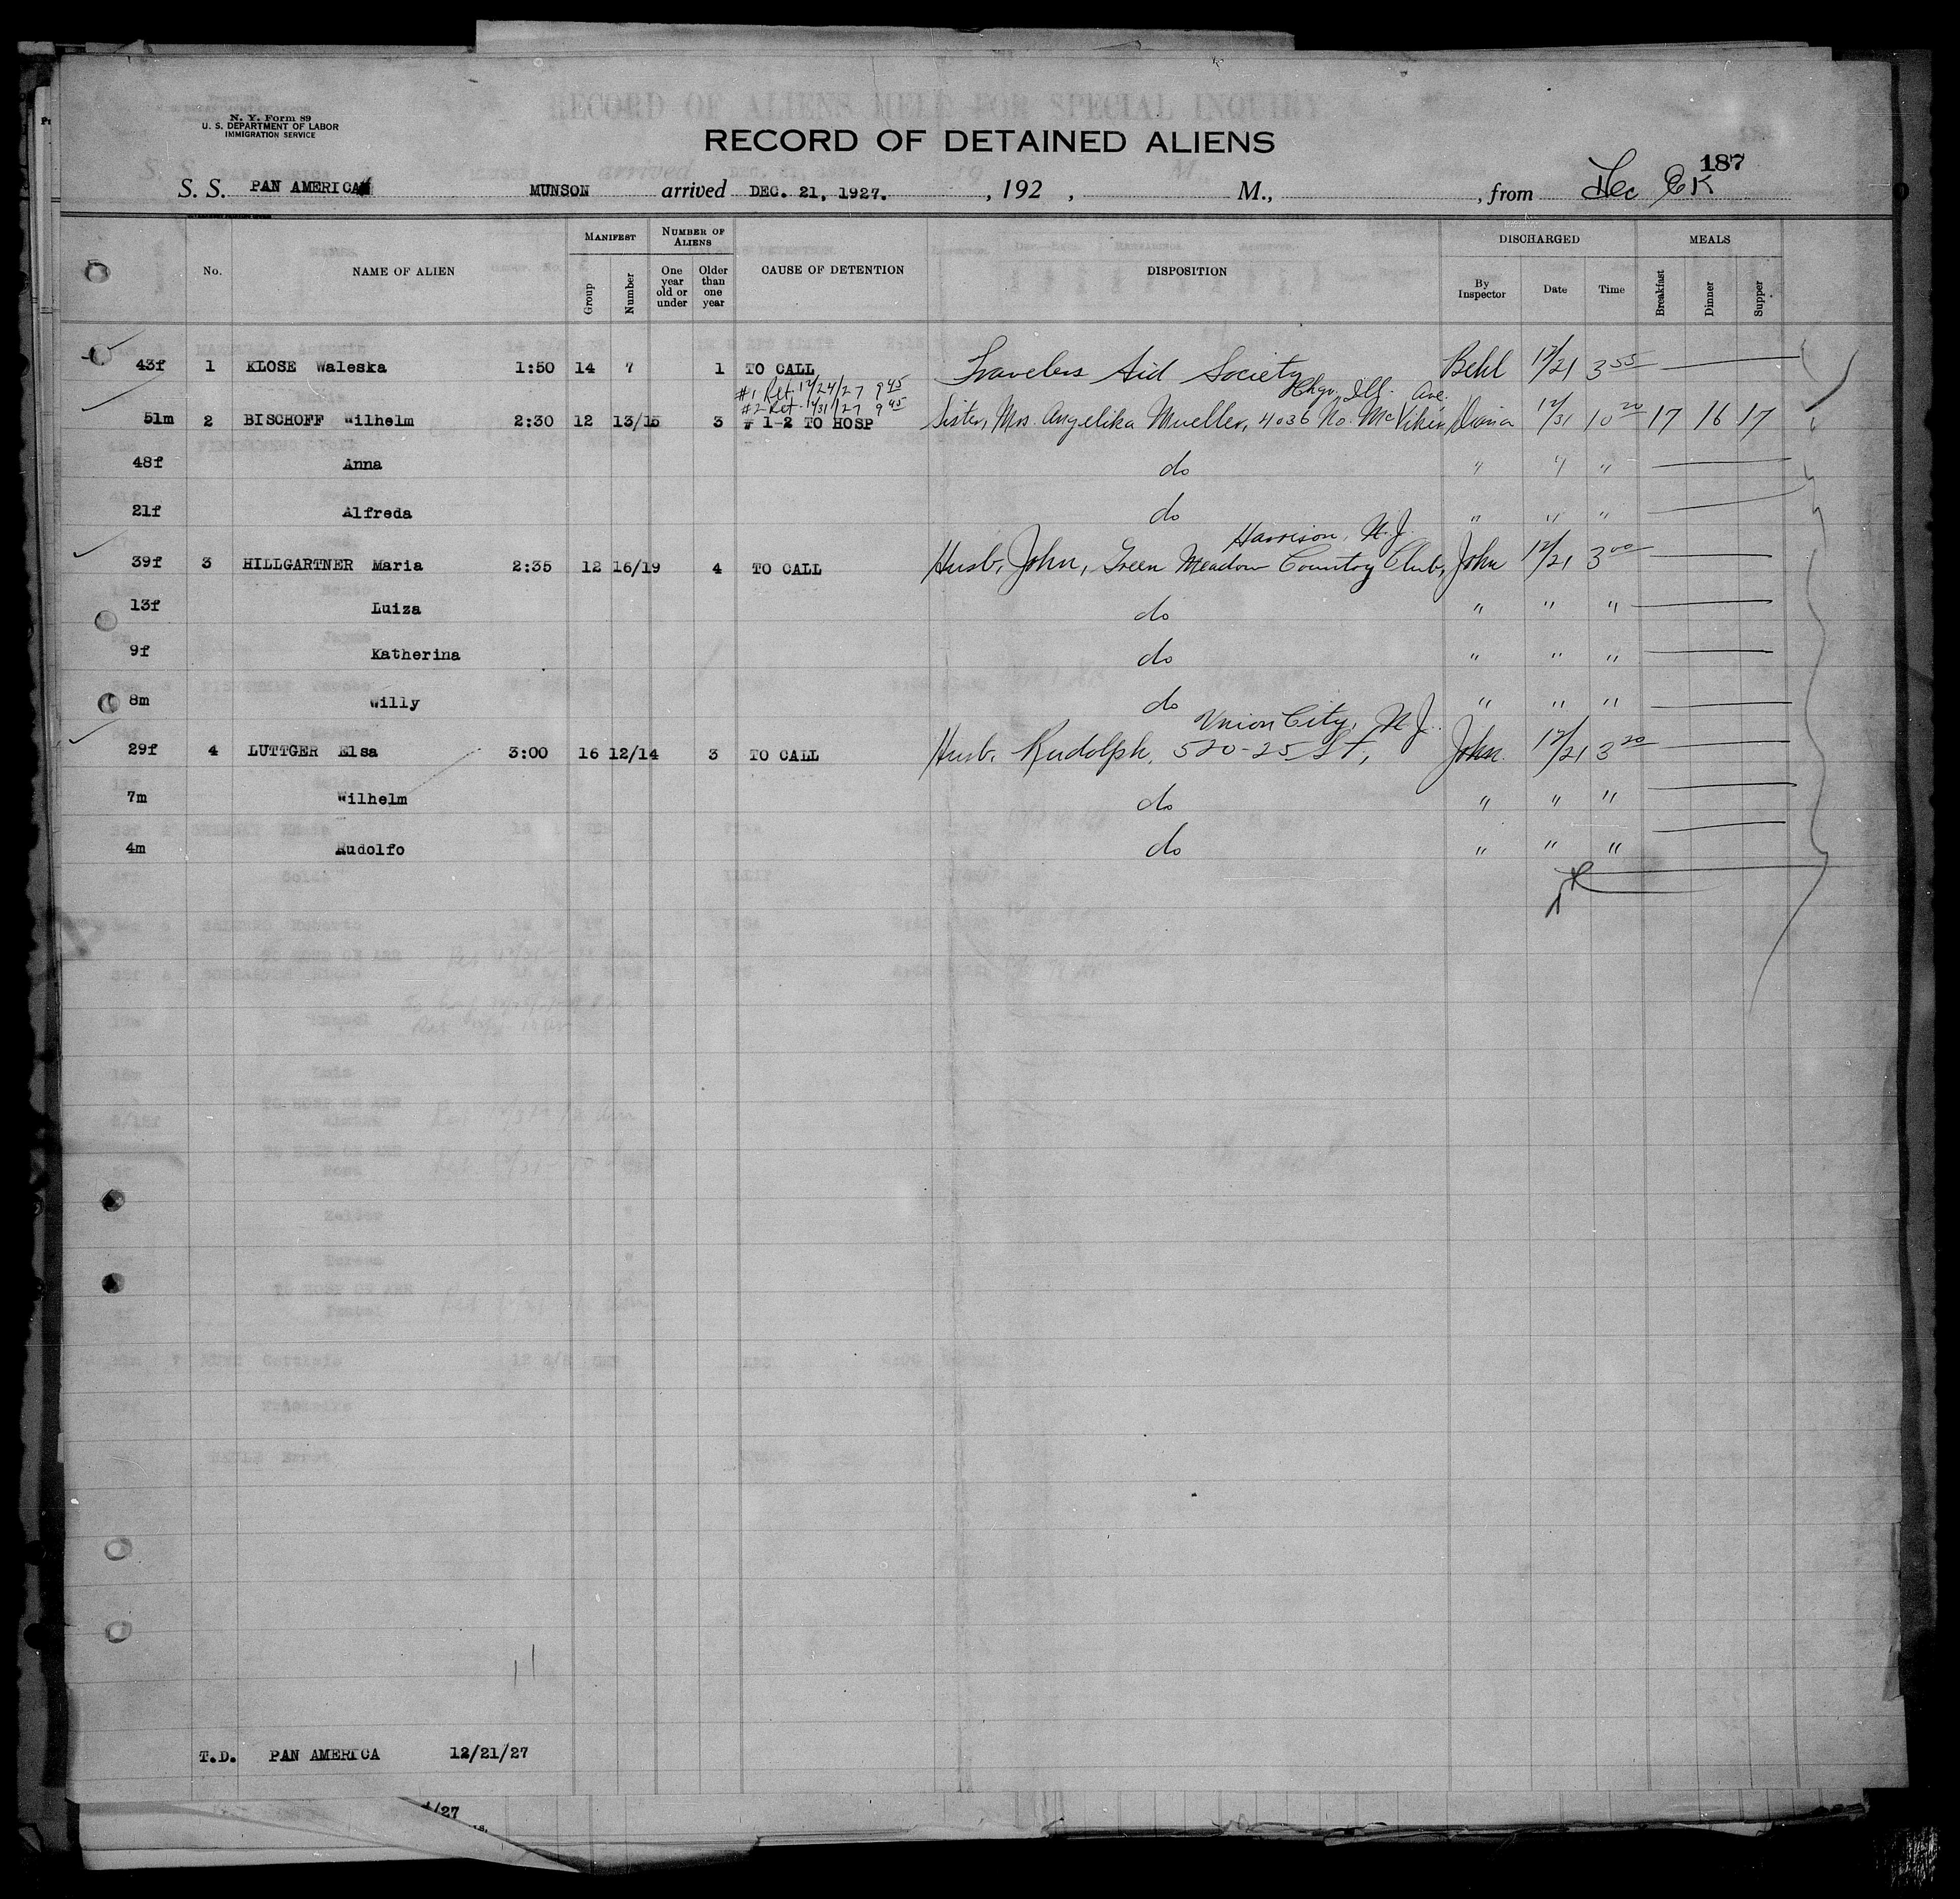 N. Y. Form 89
U. S. DEPARTMENT OF LABOR
IMMIGRATION SERVICE
RECORD OF ALIENS HELD FOR SPECIAL INQUIRY
RECORD OF DETAINED ALIENS
187
S. S. PAN AMERICA MUNSON arrived DEC. 21, 1927. , 192 , M., , from
No. NAME OF ALIEN MANIFEST Group Number NUMBER OF ALIENS One year old or under Older than one year CAUSE OF DETENTION DISPOSITION DISCHARGED By Inspector Date Time MEALS Breakfast Dinner Supper
43f 1 KLOSE Waleska 1:50 14 7 1 TO CALL Travelers Aid Society Behl 12/21 3 55
#1 Ret. 12/24/27 9 45 Ill. Ave.
#2 Ret. 12/31/27 9 45
51m 2 BISCHOFF Wilhelm 2:30 12 13/15 3 # 1-2 TO HOSP Sister, Mrs. Angelika Mueller, 4036 No. McViker 12/31 10 20 17 16 17
48f Anna do " " "
21f Alfreda do " " "
Harrison, N.J.
39f 3 HILLGARTNER Maria 2:35 12 16/19 4 TO CALL Husb, John, Green Meadow Country Club, John 12/21 3 00
13f Luiza do " " "
9f Katherina do " " "
8m Willy do " " "
Union City, N.J.
29f 4 LUTTGER Elsa 3:00 16 12/14 3 TO CALL Husb. Rudolph, 520-25 St, John 12/21 3 20
7m Wilhelm do " " "
4m Rudolfo do " " "
11
T.D. PAN AMERICA 12/21/27
/27